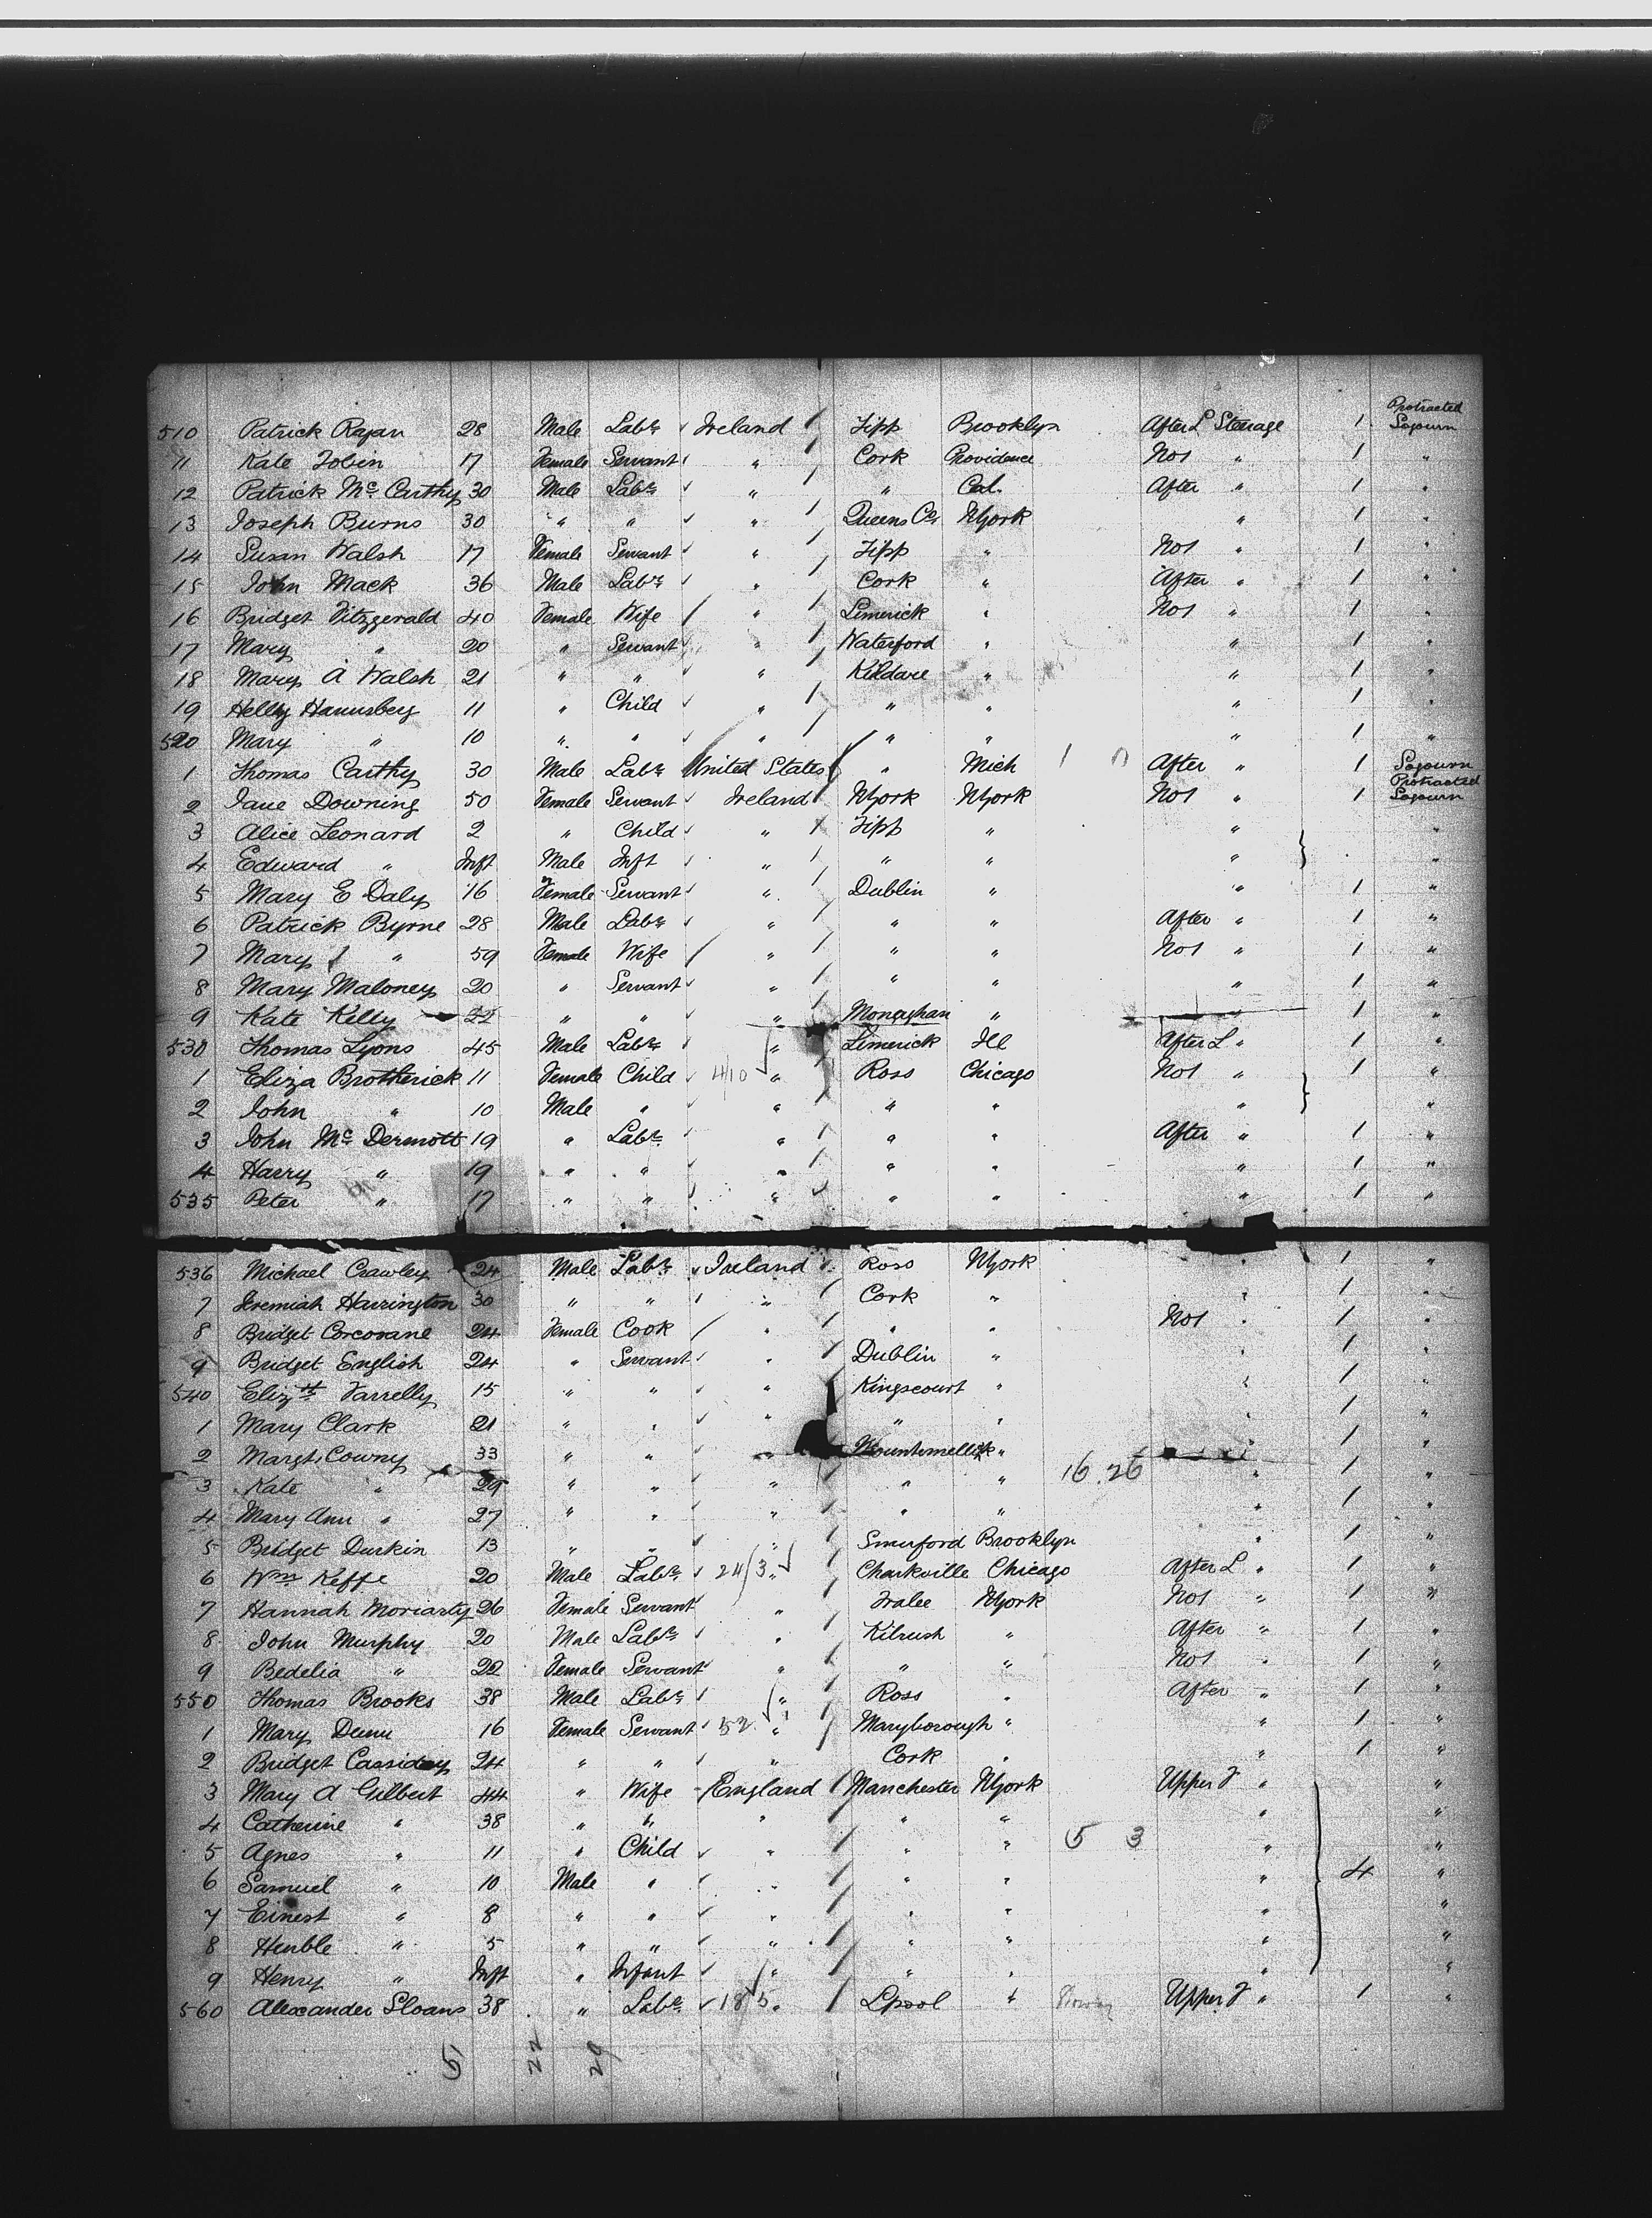 510 Patrick Ryan 28 Male Labr Ireland Tipp Brooklyn After L Steerage 1 Protracted Sojourn
11 Kate Tobin 17 Female Servant " Cork Providence No1 " 1 "
12 Patrick Mc Carthy 30 Male Labr " " Cal. After " 1 "
13 Joseph Burns 30 " " " Queens Co. NYork " 1 "
14 Susan Walsh 17 Female Servant " Tipp " No1 " 1 "
15 John Mack 36 Male Labr " Cork " After " 1 "
16 Bridget Fitzgerald 40 Female Wife " Limerick " No1 " 1 "
17 Mary " 20 " Servant " Waterford " " 1 "
18 Mary A Walsh 21 " " " Kildare " " 1 "
19 11 " Child " " " " 1 "
520 Mary " 10 " " " " " " 1 "
1 Thomas Carthy 30 Male Labr United States " Mich 1 0 After " 1 Sojourn
2 Jane Downing 50 Female Servant Ireland NYork NYork No1 " 1 Protracted Sojourn
3 Alice Leonard 2 " Child " Tipp " " "
4 Edward " Inft Male Inft " " " " "
5 Mary E Daly 16 Female Servant " Dublin " " 1 "
6 Patrick Byrne 28 Male Labr " " " After " 1 "
7 Mary " 59 Female Wife " " " No1 " 1 "
8 Mary Maloney 20 " Servant " " " " 1 "
9 Kate Kelly 22 " " " Monaghan " " 1 "
530 Thomas Lyons 45 Male Labr " Limerick Ill After L " 1 "
1 Eliza Brotherick 11 Female Child 4/10 " Ross Chicago No1 " 1 "
2 John " 10 Male " " " " " "
3 John Mc Dermott 19 " Labr " " " After " 1 "
4 Harry " 19 " " " " " " 1 "
535 Peter " 17 " " " " " " 1 "
536 Michael Crawley 24 Male Labr Ireland Ross NYork " 1 "
7 Jeremiah Harrington 30 " " " Cork " " 1 "
8 Bridget Corcorane 24 Female Cook " " " No1 " 1 "
9 Bridget English 24 " Servant " Dublin " " 1 "
540 Elizth Farrelly 15 " " " Kingscourt " " 1 "
1 Mary Clark 21 " " " " " " 1 "
2 Margt Cowny 33 " " " Mountmellick " " 1 "
3 Kate " 29 " " " " " 16 26 " 1 "
4 Mary Ann " 27 " " " " " " 1 "
5 Bridget Durkin 13 " " " Brooklyn " 1 "
6 Wm Keffe 20 Male Labr 24/3 " Charkville Chicago After L " 1 "
7 Hannah Moriarty 26 Female Servant " Tralee NYork No1 " 1 "
8 John Murphy 20 Male Labr " Kilrush " After " 1 "
9 Bedelia " 22 Female Servant " " " No1 " 1 "
550 Thomas Brooks 38 Male Labr " Ross " After " 1 "
1 Mary Dunn 16 Female Servant 52 " Maryborough " " 1 "
2 Bridget Cassidey 24 " " " Cork " " 1 "
3 Mary A Gilbert 44 " Wife England Manchester NYork Upper F " "
4 Catherine " 38 " " " " " " "
5 Agnes " 11 " Child " " " 5 3 " "
6 Samuel " 10 Male " " " " " 4 "
7 Einest " 8 " " " " " " "
8 " 5 " " " " " " "
9 Henry " Inft " Infant " " " " "
560 Alexander Sloans 38 " Labr 18/5 " Lpool " Upper F " 1 "
5 22 29